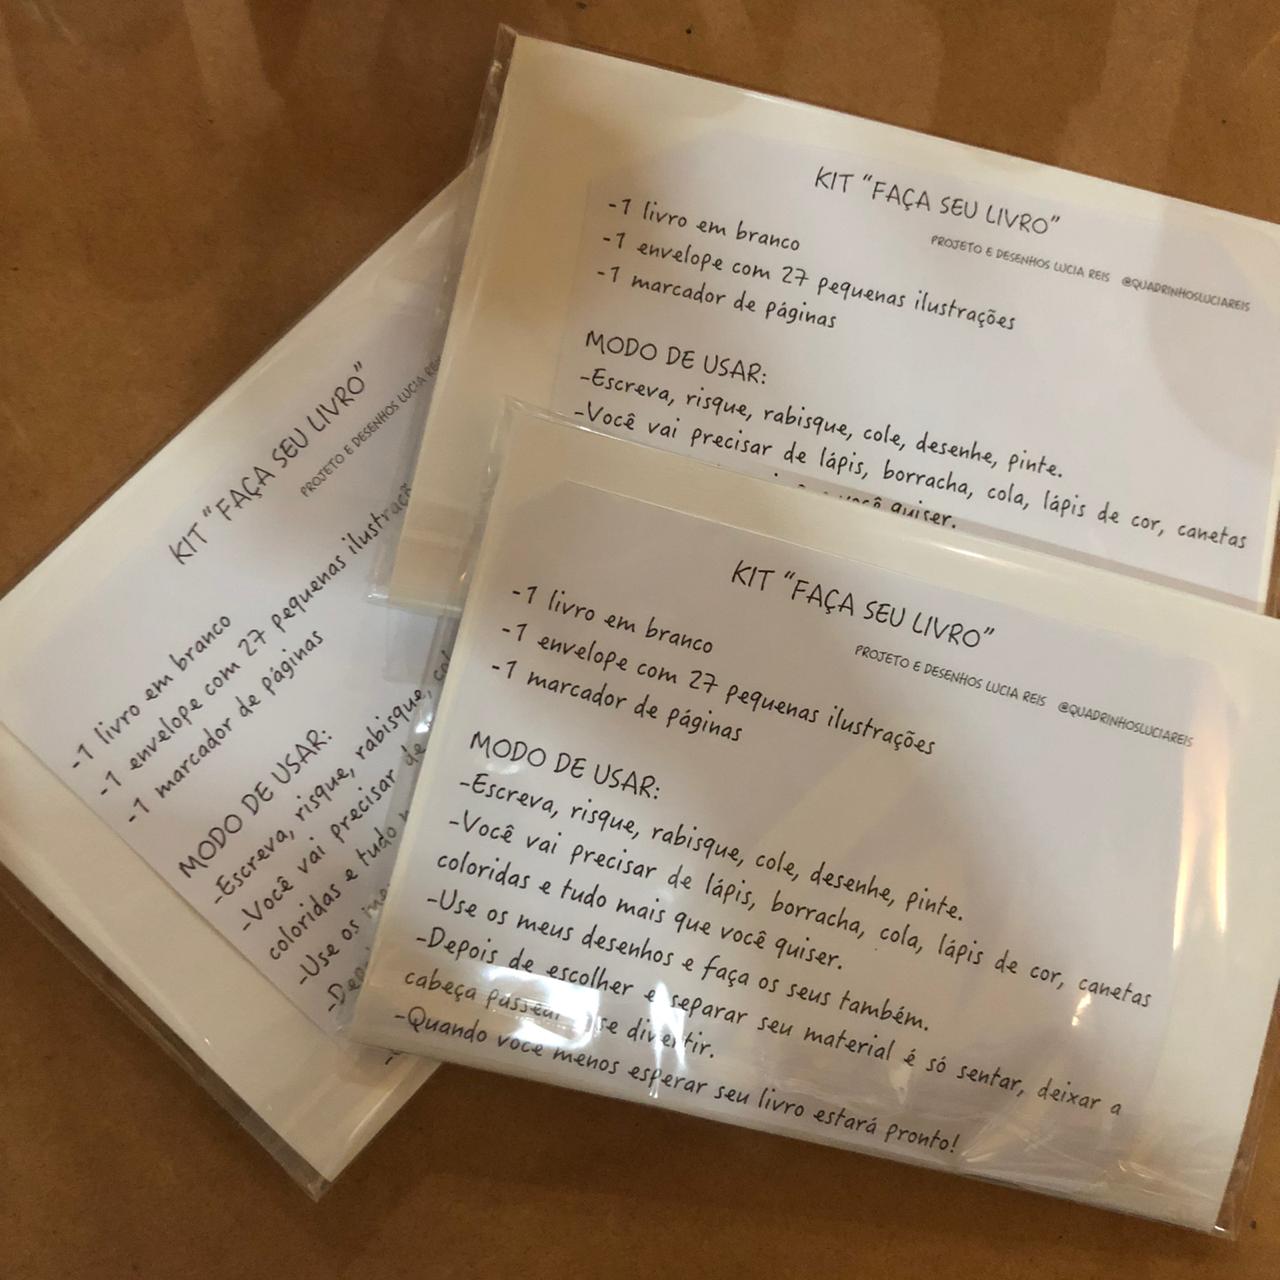 KIT "FAÇA SEU LIVRO"
PROJETO E DESENHOS LUCIA REIS @QUADRINHOSLUCIAREIS
-1 livro em branco
-1 envelope com 27 pequenas ilustrações
-1 marcador de páginas
MODO DE USAR:
-Escreva, risque, rabisque, cole, desenhe, pinte.
-Você vai precisar de lápis, borracha, cola, lápis de cor, canetas
você quiser.
KIT "FAÇA SEU LIVRO"
PROJETO E DESENHOS LUCIA REIS
-1 livro em branco
-1 envelope com 27 pequenas
-1 marcador de páginas
MODO DE USAR:
-Escreva, risque, rabisque,
-Você vai precisar de
coloridas e tudo
-Use os
KIT "FAÇA SEU LIVRO"
PROJETO E DESENHOS LUCIA REIS @QUADRINHOSLUCIAREIS
-1 livro em branco
-1 envelope com 27 pequenas ilustrações
-1 marcador de páginas
MODO DE USAR:
-Escreva, risque, rabisque, cole, desenhe, pinte.
-Você vai precisar de lápis, borracha, cola, lápis de cor, canetas
coloridas e tudo mais que você quiser.
-Use os meus desenhos e faça os seus também.
-Depois de escolher e separar seu material é só sentar, deixar a
cabeça passear se divertir.
-Quando você menos esperar seu livro estará pronto!